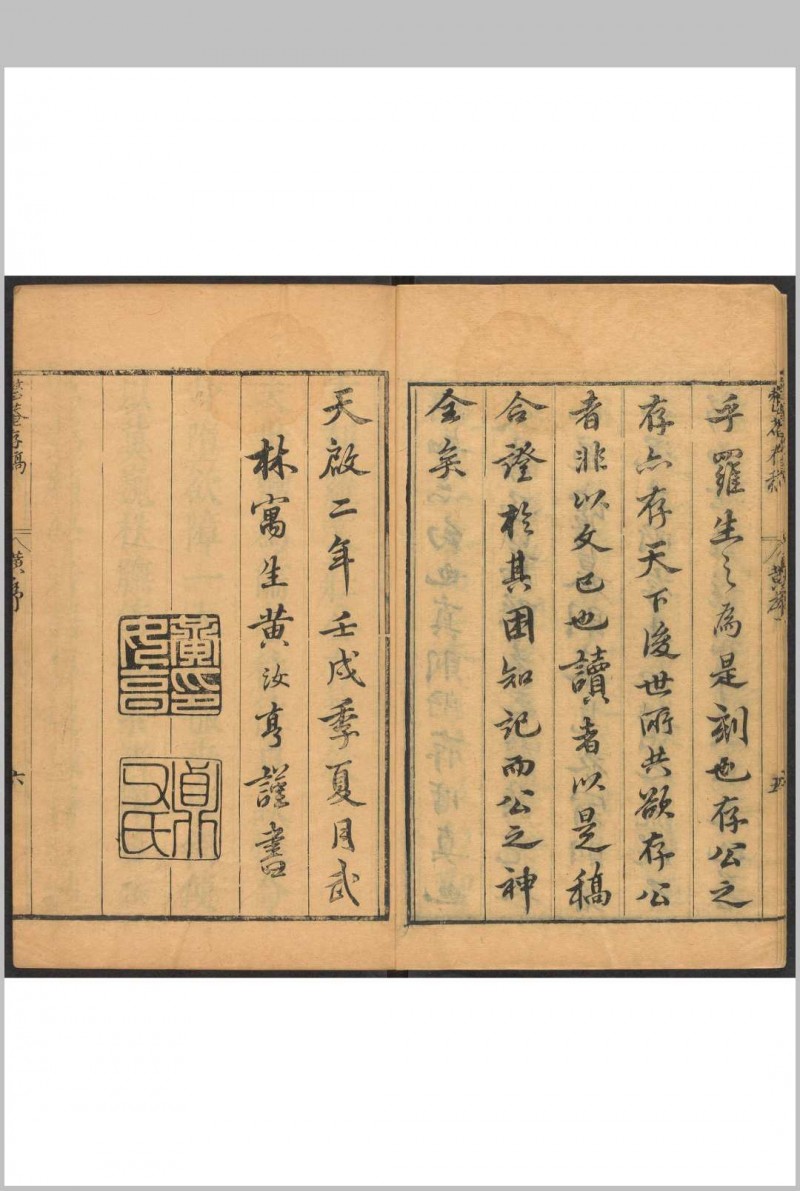 乎羅生之為是刻也存公之
存亦存天下後世所共欲存公
者非以文已也讀者以是稿
合證於其困知記而公之神
全矣
黃序
五
天啟二年壬戌季夏月武
林寓生黃汝亨謹書
黃印
汝亨
貞父氏
整菴存稿
黃序
六